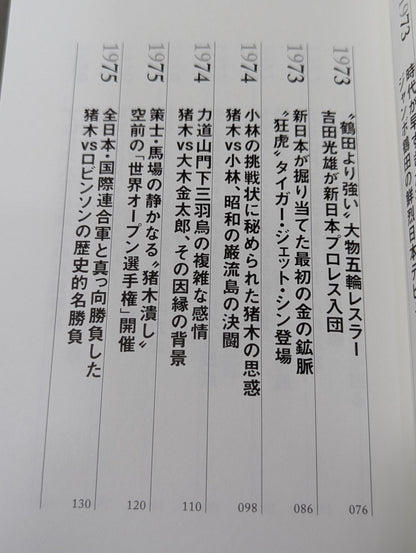 1973
"鶴田より強い"大物五輪レスラー
吉田光雄が新日本プロレス入団
076
1973
新日本が掘り当てた最初の金の鉱脈
"狂虎"タイガー・ジェット・シン登場
086
1974
小林の挑戦状に秘められた猪木の思惑
猪木vs小林、昭和の巌流島の決闘
098
1974
力道山門下三羽烏の複雑な感情
猪木vs大木金太郎、その因縁の背景
110
1975
策士・馬場の静かなる"猪木潰し"
空前の「世界オープン選手権」開催
120
1975
全日本・国際連合軍と真っ向勝負した
猪木vsロビンソンの歴史的名勝負
130